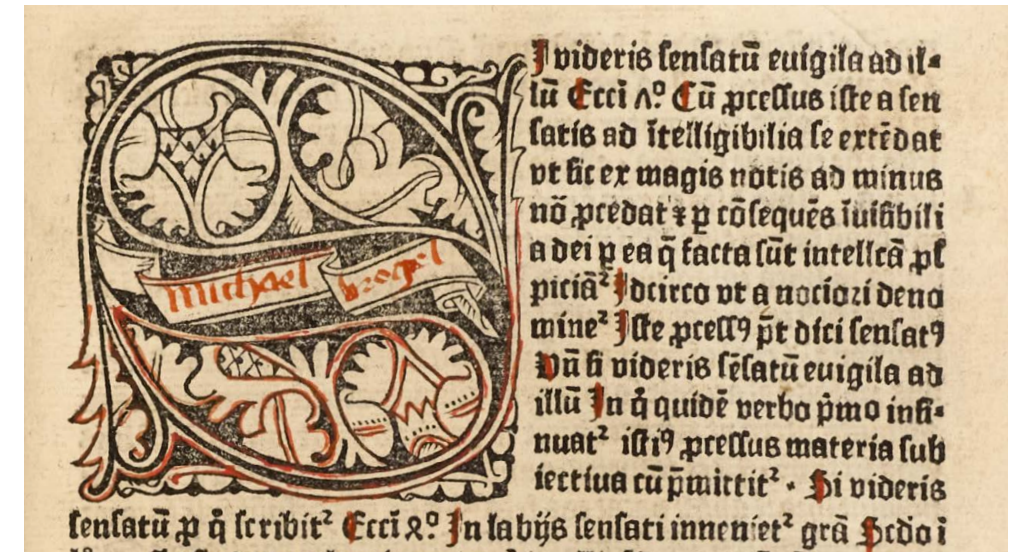 S
I videris sensatū euigila ad il-
lū Ecci ꝟº Cū ꝓcessus iste a sen
satis ad ītelligibilia se extēdat
vt sic ex magis notis ad minus
nō ꝓcedat ⁊ ꝑ cōsequēs īuisibili
a dei ꝑ ea q̄ facta sūt intellcā ꝓs
piciā² Idcirco vt a nociori deno
mine² Iste ꝓcessꝰ p̄t dici sensatꝰ
Vn̄ si videris sēsatū euigila ad
illū In q̊ quidē verbo p̄mo insi-
nuat² istiꝰ ꝓcessus materia sub
iectiua cū p̄mittit² · Si videris
michael
sensatū ꝓ q̊ scribit² Ecci ꝝº In labijs sensati inneniet² grā Scdo ī